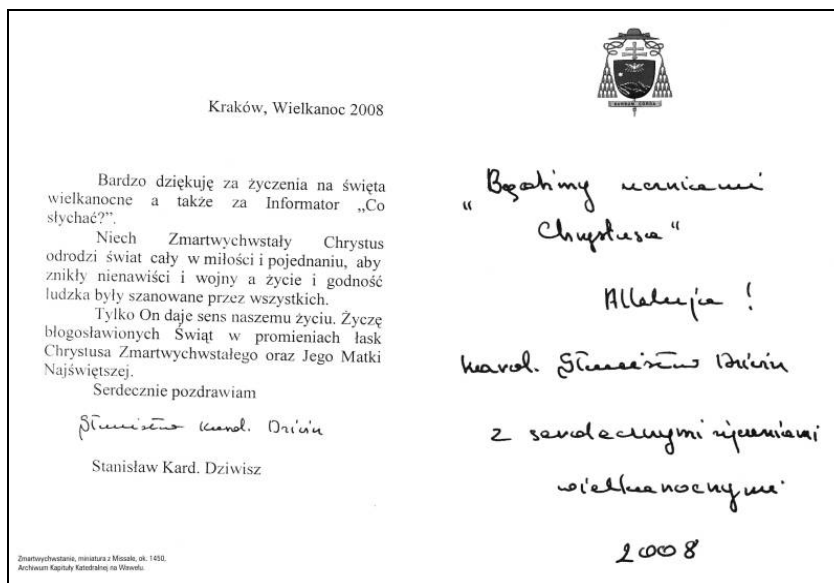 Kraków, Wielkanoc 2008
Bardzo dziękuję za życzenia na święta
wielkanocne a także za Informator „Co
słychać?”.
Niech Zmartwychwstały Chrystus
odrodzi świat cały w miłości i pojednaniu, aby
znikły nienawiści i wojny a życie i godność
ludzka były szanowane przez wszystkich.
Tylko On daje sens naszemu życiu. Życzę
błogosławionych Świąt w promieniach łask
Chrystusa Zmartwychwstałego oraz Jego Matki
Najświętszej.
Serdecznie pozdrawiam
Stanisław Kard. Dziwisz
Stanisław Kard. Dziwisz
Zmartwychwstanie, miniatura z Missale, ok. 1450,
Archiwum Kapituły Katedralnej na Wawelu.
SURSUM CORDA
„Bądźmy uczniami
Chrystusa“
Alleluja !
Kard. Stanisław Dziwisz
z serdecznymi życzeniami
wielkanocnymi
2008